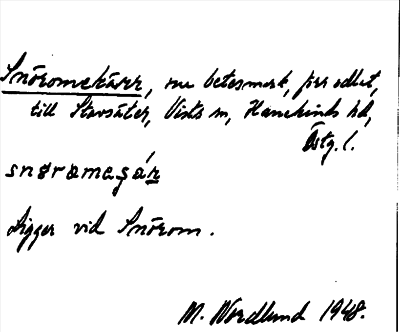 Snöromskärr, nu betesmark, förr odlat,
till Stavsäter, Vists sn, Hanekinds hd,
Östg. l.
Ligger vid Snörom.
M. Nordlund 1948.